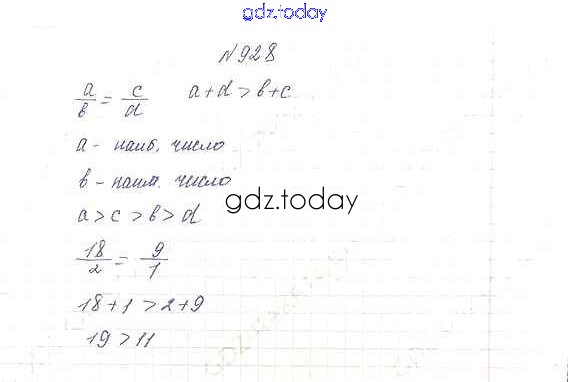 gdz.today
№928
a/b = c/d a+d > b+c
a - наиб. число
b - наим. число
gdz.today
a > c > b > d
18/2 = 9/1
18+1 > 2+9
19 > 11